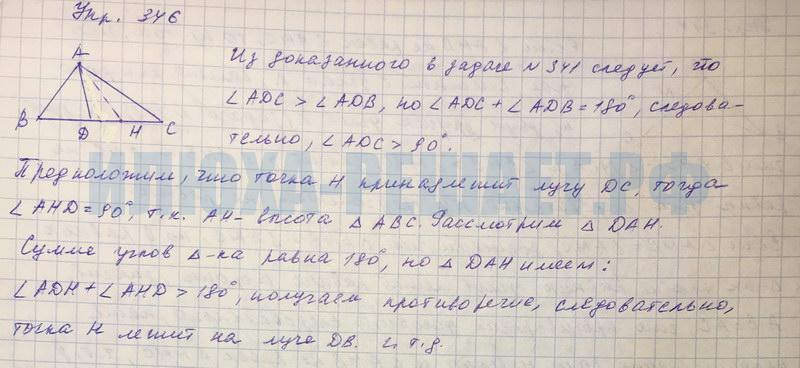 Упр. 346
A
B
D
H
C
Из доказанного в задаче №341 следует, что
∠ADC > ∠ADB, но ∠ADC + ∠ADB = 180°, следова-
тельно, ∠ADC > 90°.
Предположим, что точка H принадлежит лучу DC, тогда
∠AHD = 90°, т.к. AH - высота △ ABC. Рассмотрим △ DAH.
Сумма углов △-ка равна 180°, но △ DAH имеем:
∠ADH + ∠AHD > 180°, получаем противоречие, следовательно,
точка H лежит на луче DB. и т.д.
ИЛЮХА-РЕШАЕТ.РФ